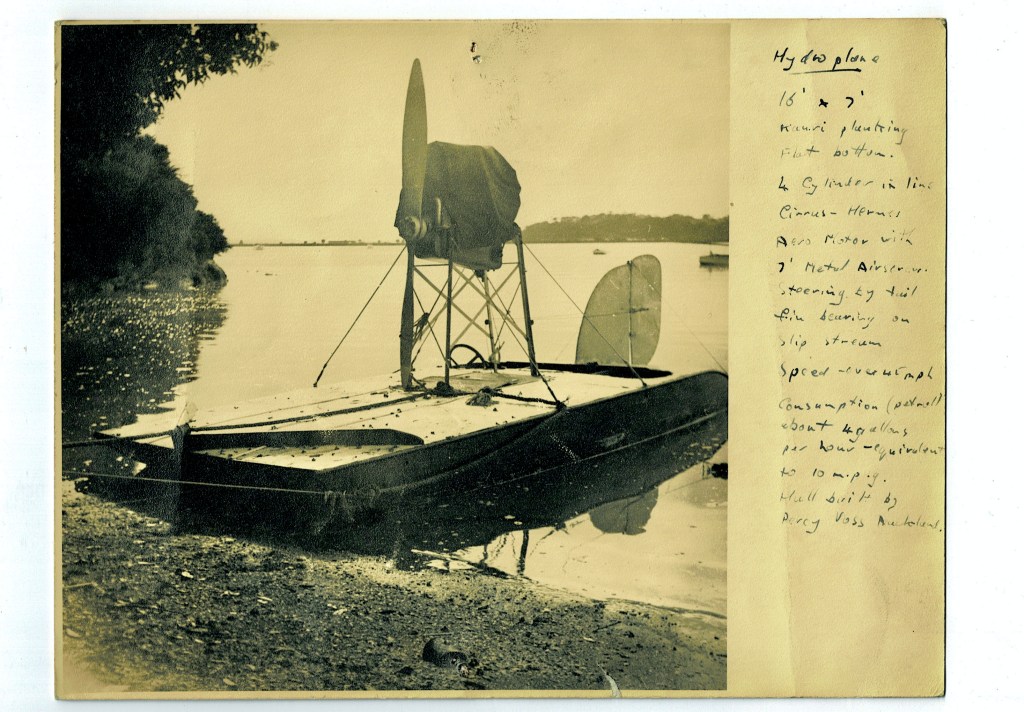 Hydroplane
16' x 7'
Kauri planking
Flat bottom.
4 Cylinder in line
Cirrus-Hermes
Aero Motor with
7' Metal Airscrew.
Steering by tail
fin bearing on
slip stream
Speed - mph
Consumption (petrol)
about 4 gallons
per hour - equivalent
to 10 m.p.g.
Hull built by
Percy Voss Auckland.